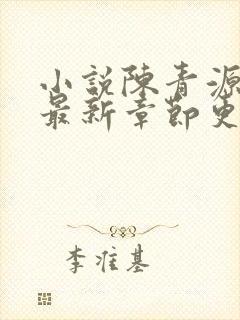 小說陳青源
最新章節更
李准基